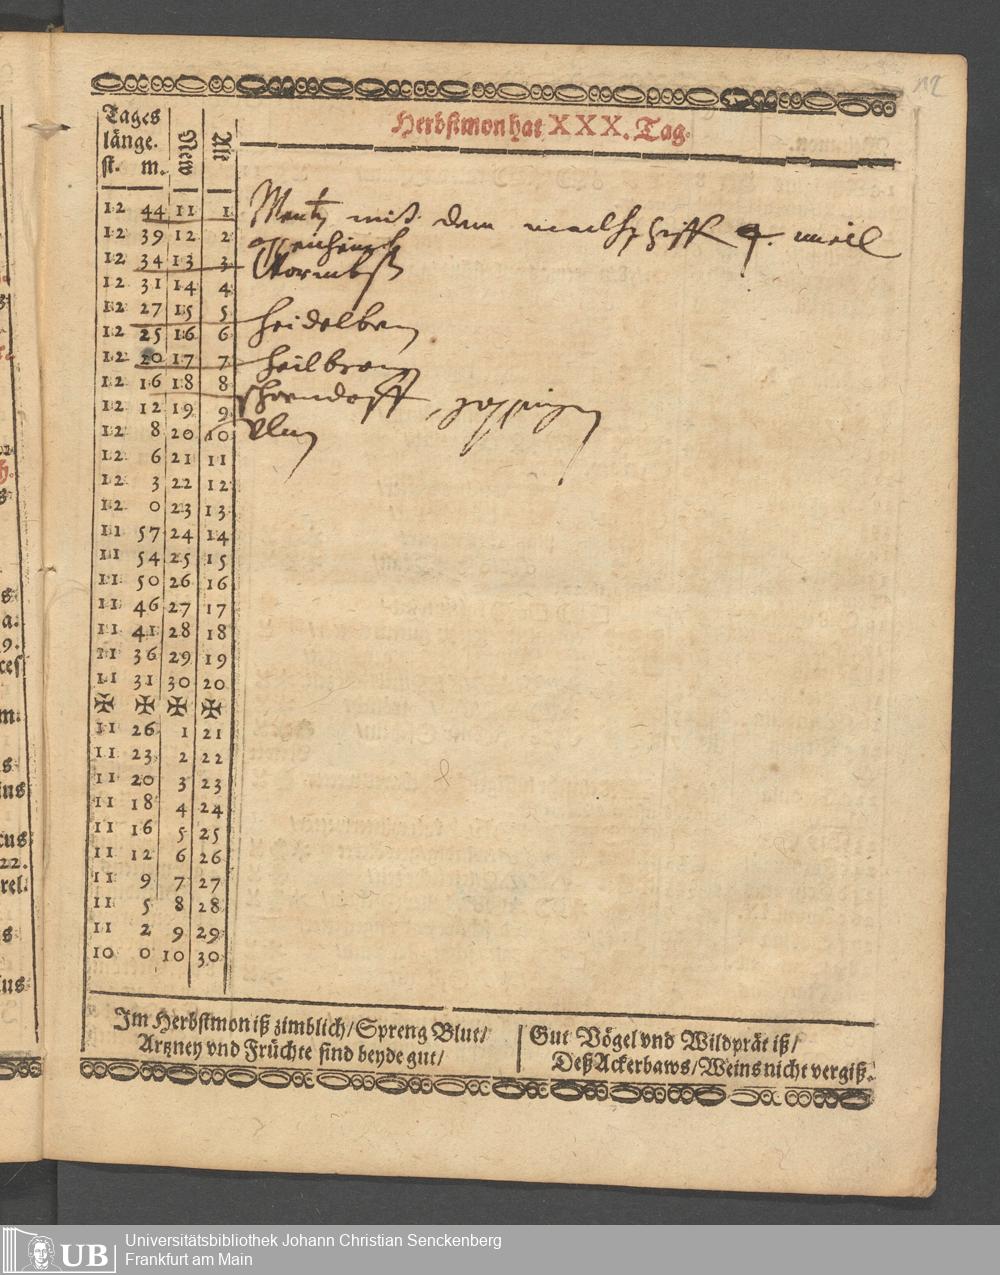 112
Herbstmon hat XXX. Tag.
Tages länge. st. m. New Alt
12 44 11 1 Mentz mit dem marckschiff 4. meil
12 39 12 2 oppenheimb
12 34 13 3 Wormbß
12 31 14 4
12 27 15 5 heidelberg
12 25 16 6
12 20 17 7 heilbronn
12 16 18 8 schorndorff, göppingen
12 12 19 9
12 8 20 10 Ulm
12 6 21 11
12 3 22 12
12 0 23 13
11 57 24 14
11 54 25 15
11 50 26 16
11 46 27 17
11 41 28 18
11 36 29 19
11 31 30 20
✠ ✠ ✠ ✠
11 26 1 21
11 23 2 22
11 20 3 23
11 18 4 24
11 16 5 25
11 12 6 26
11 9 7 27
11 5 8 28
11 2 9 29
10 0 10 30
Im Herbstmon iß zimblich/ Spreng Blut/
Artzney vnd Früchte sind beyde gut/
Gut Vögel vnd Wildprät iß/
Deß Ackerbaws/ Weins nicht vergiß.
UB
Universitätsbibliothek Johann Christian Senckenberg
Frankfurt am Main